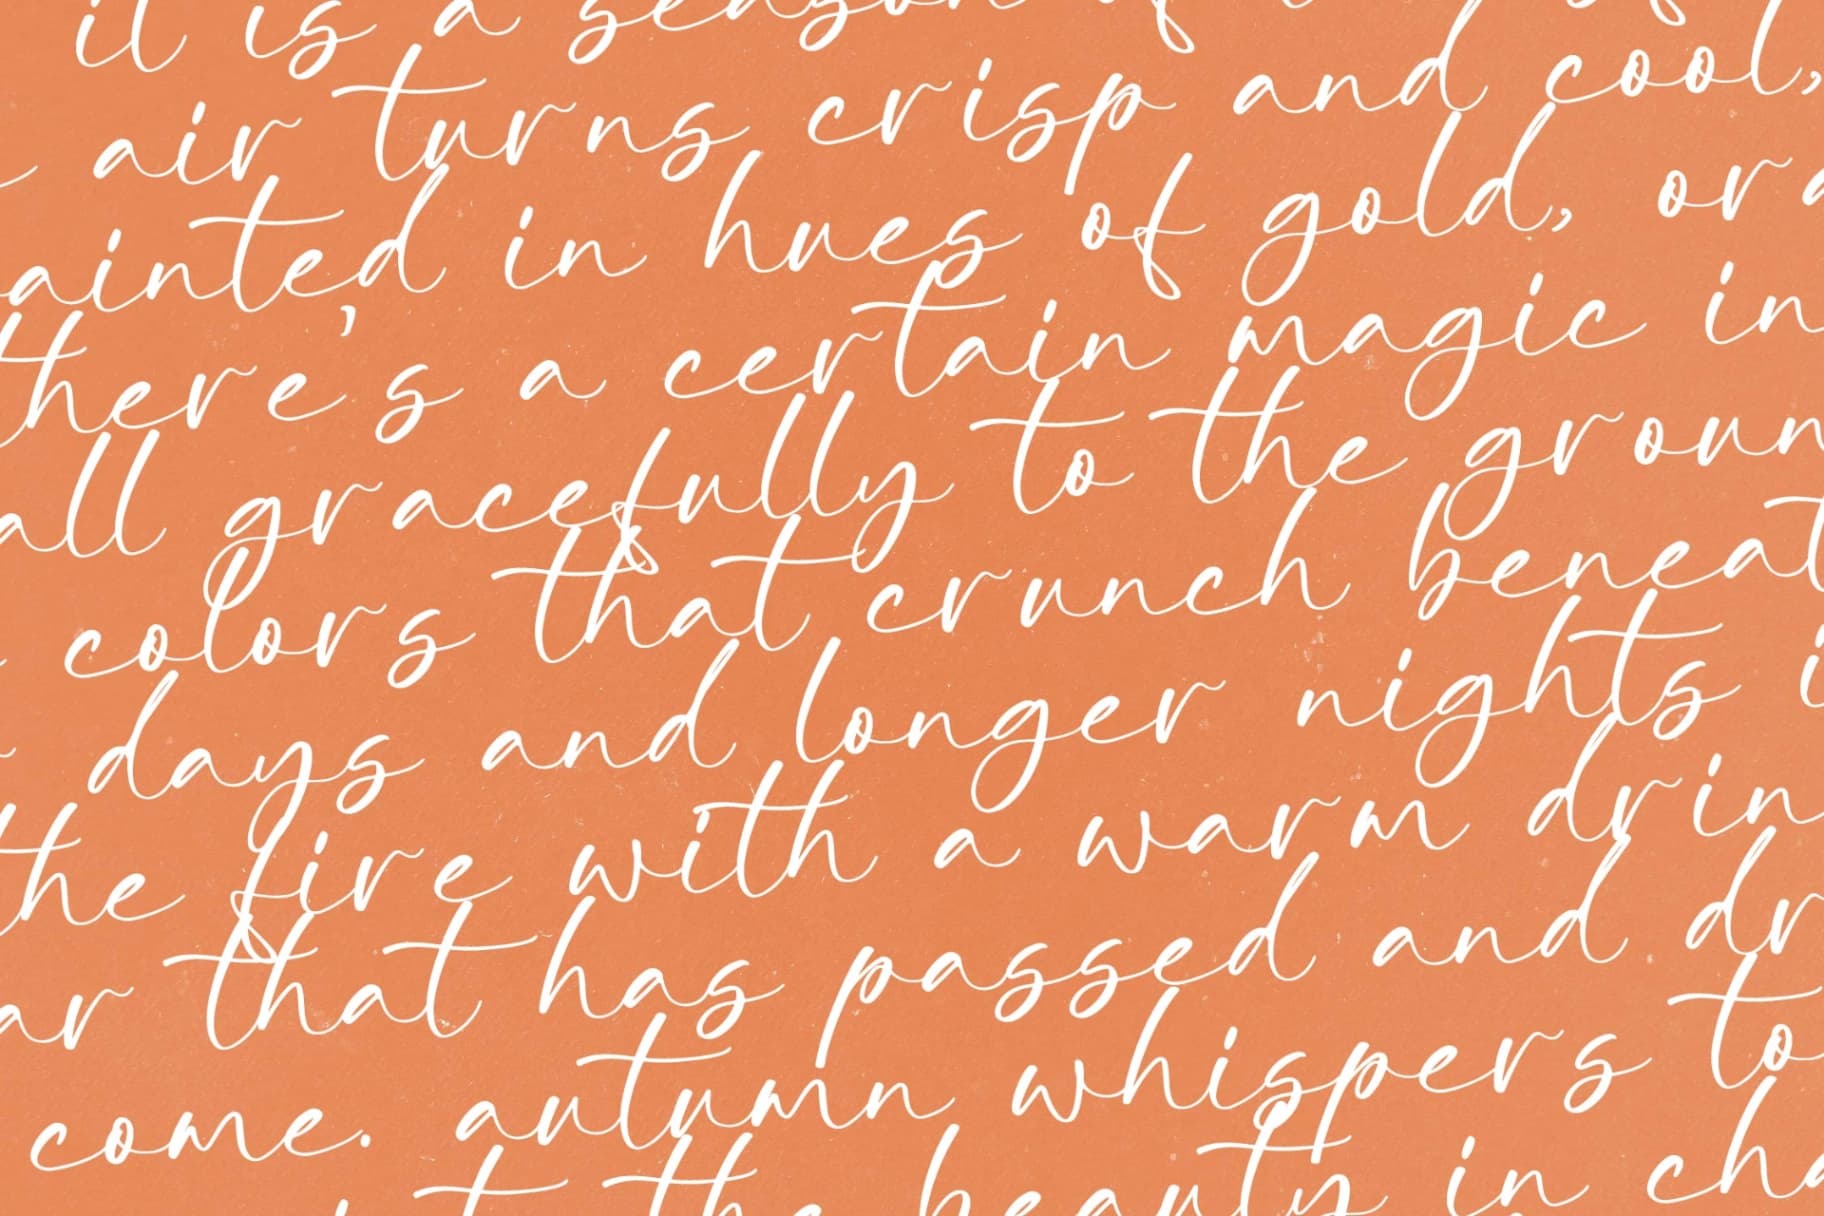 it is a season of
air turns crisp and cool,
ainted in hues of gold, ora
there's a certain magic in
all gracefully to the groun
colors that crunch beneat
days and longer nights i
the fire with a warm drin
ar that has passed and dr
come. autumn whispers to
the beauty in cha